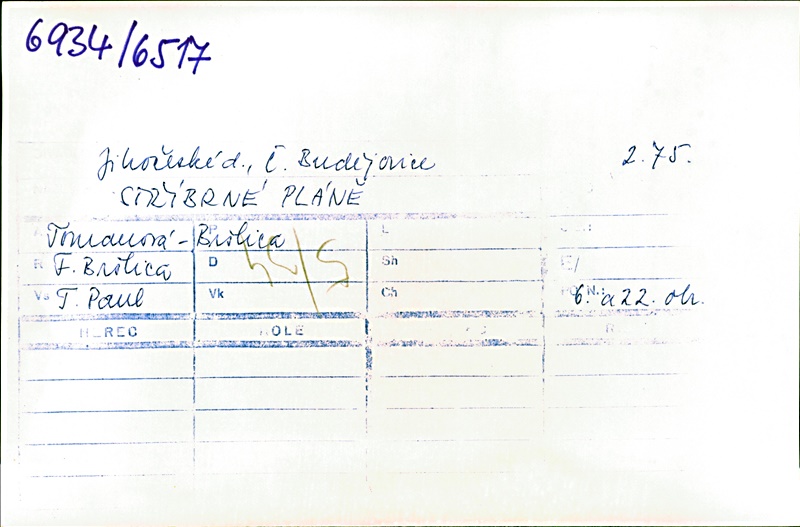 6934/6517
Jihočeské d., Č. Budějovice 2.75.
STŘÍBRNÉ PLÁNĚ
Tomanová - Brůlica P L
R F. Brůlica D Sh
Vs T. Paul Vk Ch 6. a 22. obr.
HEREC ROLE